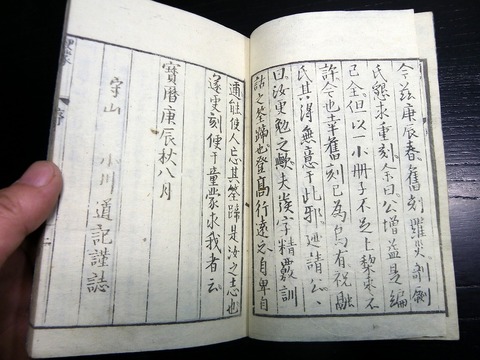 今茲庚辰春舊刻羅災剞劂
氏懇求重刻余曰公增益是編
已全但以一小冊子不足上黎棗不
許今也幸舊刻已為烏有祝融
氏其得無意于此邪請公、
曰汝更勉之夫字精覈訓
詁之筌蹄也登高行遠之自卑自
邇能使人忘其筌蹄是汝之志也
遂更刻便于童蒙求我者云
寶曆庚辰秋八月
守山 小川 道記謹誌
序